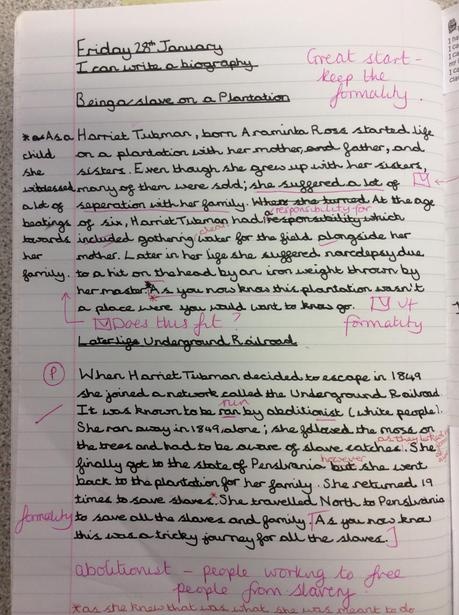 Friday 28th January
I can write a biography
Great start -
keep the
formality.
Being a slave on a Plantation
*as As a
child
she
witnessed
a lot of
beatings
towards
her
family.
Harriet Tubman, born Araminta Ross started life
on a plantation with her mother, and father, and
sisters. Even though she grew up with her sisters,
many of them were sold; she suffered a lot of
seperation with her family. When she turned At the age
a responsibility for
of six, Harriet Tubman had responsibility which
clear!
included gathering water for the field alongside her
mother. Later in her life she suffered narcolepsy due
to a hit on the head by an iron weight thrown by
her master. As you now know this plantation wasn't
a place were you would want to know go.
ut
formality
Does this fit?
Later life Underground Railroad
P
When Harriet Tubman decided to escape in 1849
she joined a network called the Underground Railroad.
run
It was known to be ran by abolitionist (white people).
She ran away in 1849, alone; she follwed the moss on
the trees and had to be aware of slave catches. She
as they looked
however
finally got to the state of Penslvania but she went
back to the plantation for her family. She returned 19
times to save slaves.* She travelled North to Penslvania
formality
to save all the slaves and family. [As you now know
this was a tricky journey for all the slaves.]
abolitionist - people working to free
people from slavery
*as she knew that was what she was meant to do